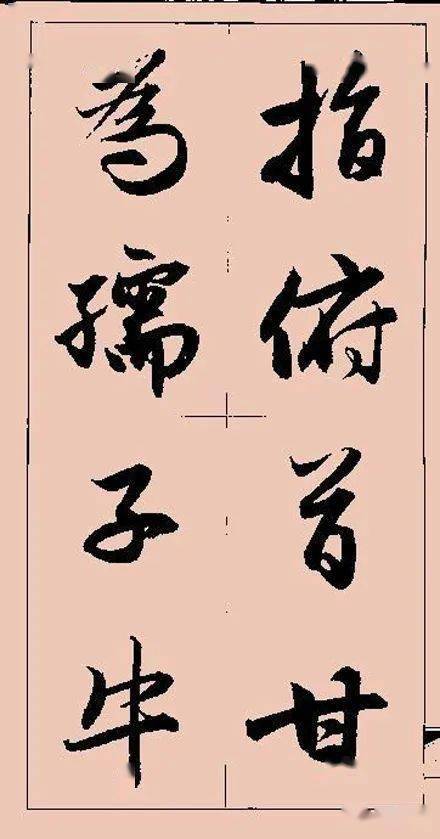 指俯首甘
為孺子牛